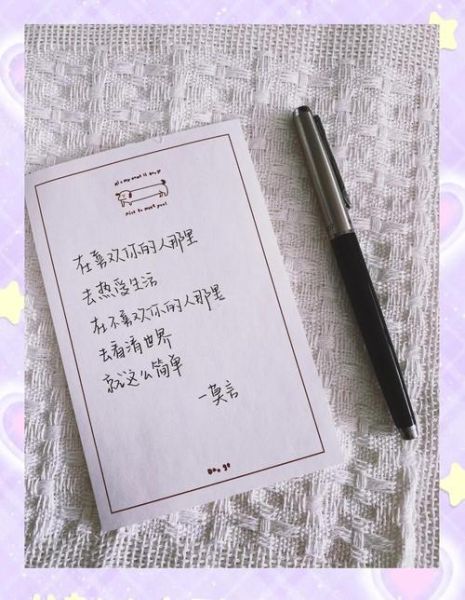 Hi ~ my name is Dou ge
Nice to meet you!
在喜欢你的人那里
去热爱生活
在不喜欢你的人那里
去看清世界
就这么简单
一莫言
Dou ge